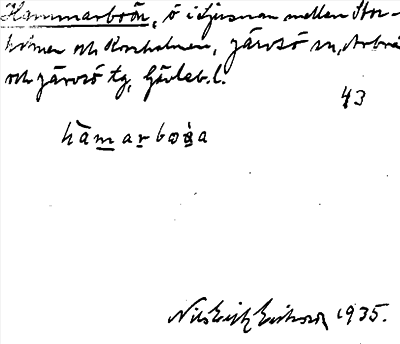 Hammarboön, ö i Ljusnan mellan Stor-
holmen och Kornholmen, Järvsö sn, Arbrå
och Järvsö tg, Gävleb. l.
43
hamarboa
Nils Erik Eriksson 1935.